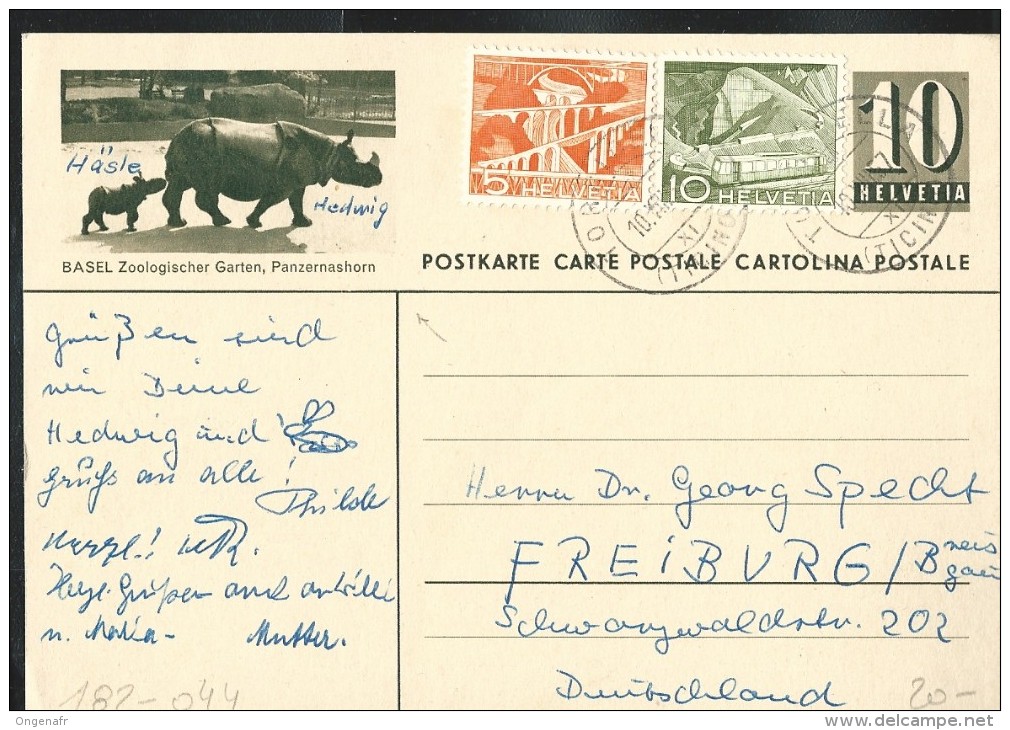 Häsle
Hedwig
BASEL Zoologischer Garten, Panzernashorn
5 HELVETIA
10 HELVETIA
10
HELVETIA
(TICINO)
(TICINO)
POSTKARTE CARTE POSTALE CARTOLINA POSTALE
Grüßen sind
wir Deine
Hedwig und
Grüße an alle!
Thilde
Herzl.!
Herzl. Grüßen auch
u. Maria - Mutter.
Herrn Dr. Georg Specht
FREIBURG / Breisgau
Schwarzwaldstr. 202
Deutschland
182-044
20-
Ongenafr
www.delcampe.net